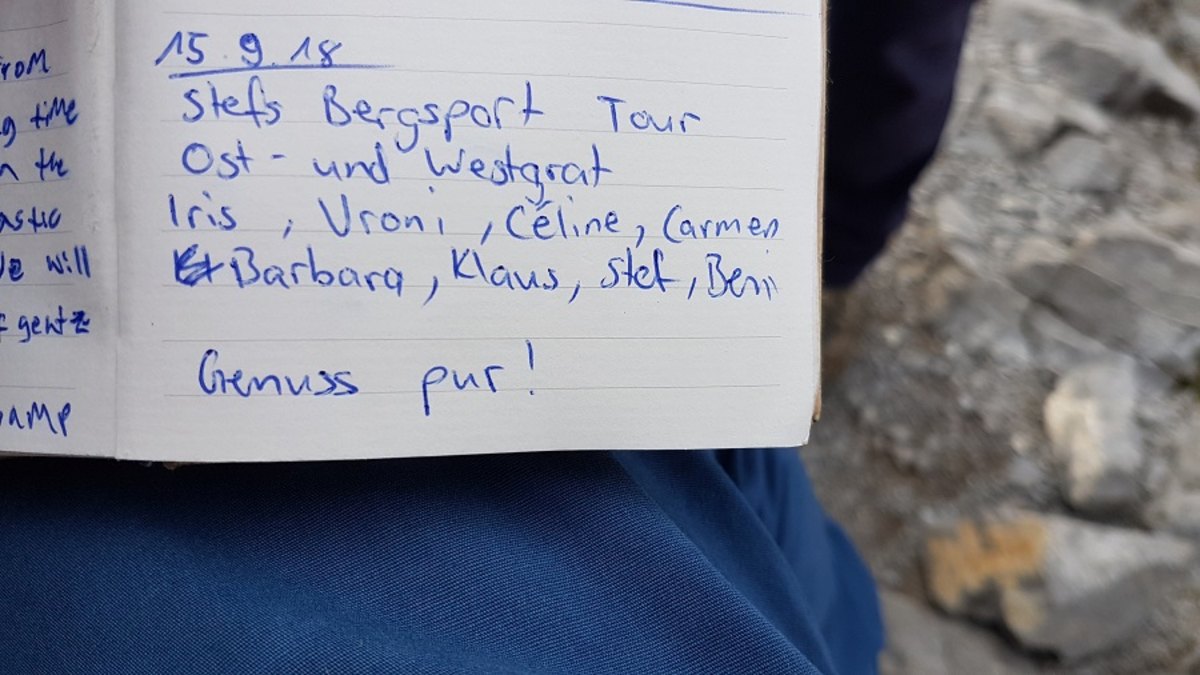 time
the
will
15.9.18
Stefs Bergsport Tour
Ost- und Westgrat
Iris, Vroni, Céline, Carmen
Barbara, Klaus, Stef, Beni
Genuss pur!